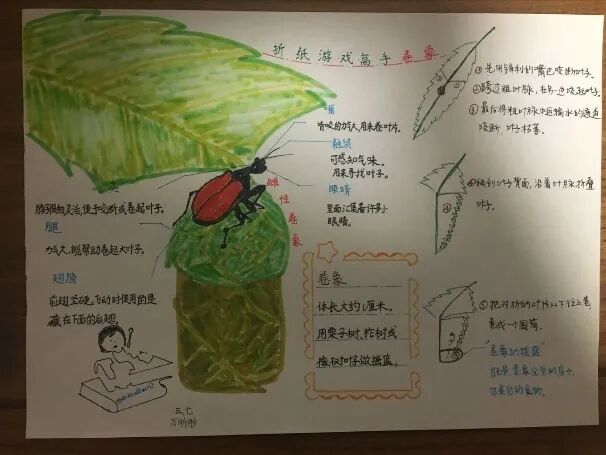 折纸游戏高手卷象
嘴
啃咬的力大,用来卷叶片。
触须
可感知气味。
用来寻找叶子。
眼睛
里面汇集着许多
眼睛。
雌性卷象
脖子很细灵活,便于咬断或卷起叶子。
腿
力大,能帮助卷起大叶子。
翅膀
前翅坚硬。飞动时使用的是
藏在下面的后翅。
三.七
卷象
体长大约1厘米。
用栗子树、柞树或
橡树叶子做摇篮。
①先用锋利的嘴巴咬断叶子。
②跨过粗叶脉,在另一边咬起叶子。
③最后将粗叶脉中运输水的通道
咬断,叶子枯萎。
④爬到叶子背面,沿着叶脉折叠
叶子。
⑤把对折的叶片从下往上卷,
卷成一个圆筒。
“卷象的摇篮”
既是卷象宝宝的房子,
也是它的食物。